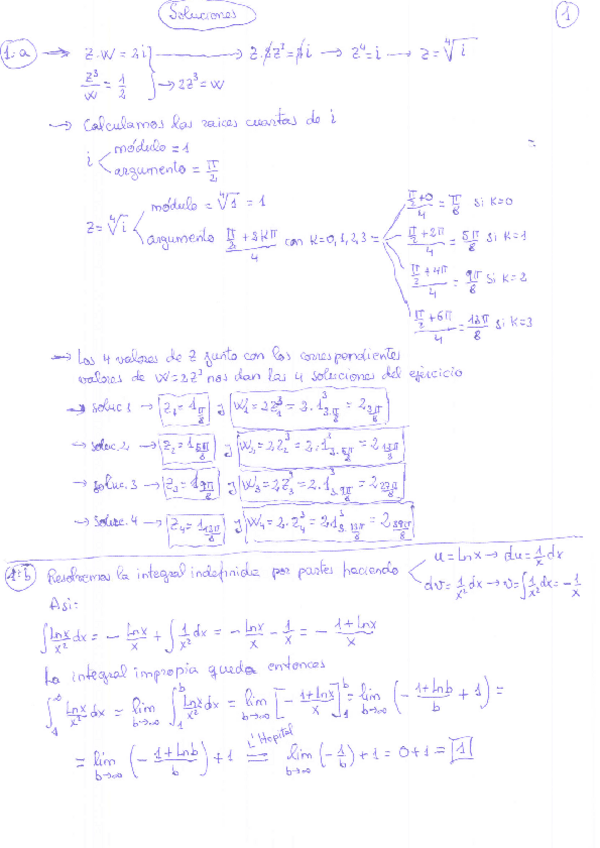 Soluciones
1
1.a → z·w = 2i → z·2z³ = 2i → z⁴ = i → z = ⁴√i
z³/w = 1/2 → 2z³ = w
→ Calculamos las raices cuartas de i
i
módulo = 1
argumento = π/2
z = ⁴√i
módulo = ⁴√1 = 1
argumento (π/2 + 2kπ)/4 con K=0,1,2,3 =
(π/2+0)/4 = π/8 si K=0
(π/2+2π)/4 = 5π/8 si K=1
(π/2+4π)/4 = 9π/8 si K=2
(π/2+6π)/4 = 13π/8 si K=3
→ Los 4 valores de z junto con los correspondientes
valores de w=2z³ nos dan las 4 soluciones del ejercicio
→ soluc.1 → z₁ = 1_π/8 y w₁ = 2z₁³ = 2·1³_3·π/8 = 2_3π/8
→ soluc.2 → z₂ = 1_5π/8 y w₂ = 2z₂³ = 2·1³_3·5π/8 = 2_15π/8
→ soluc.3 → z₃ = 1_9π/8 y w₃ = 2z₃³ = 2·1³_3·9π/8 = 2_27π/8
→ soluc.4 → z₄ = 1_13π/8 y w₄ = 2·z₄³ = 2·1³_3·13π/8 = 2_39π/8
1.b Resolvemos la integral indefinida por partes haciendo
u = Lnx → du = 1/x dx
dv = 1/x² dx → v = ∫1/x² dx = -1/x
Asi:
∫ Lnx/x² dx = - Lnx/x + ∫ 1/x² dx = - Lnx/x - 1/x = - (1+Lnx)/x
La integral impropia queda entonces
∫₁^∞ Lnx/x² dx = lim b→∞ ∫₁^b Lnx/x² dx = lim b→∞ [- (1+Lnx)/x]₁^b = lim b→∞ (- (1+Lnb)/b + 1) =
= lim b→∞ (- (1+Lnb)/b) + 1 = L'Hopital lim b→∞ (- 1/b) + 1 = 0+1 = 1